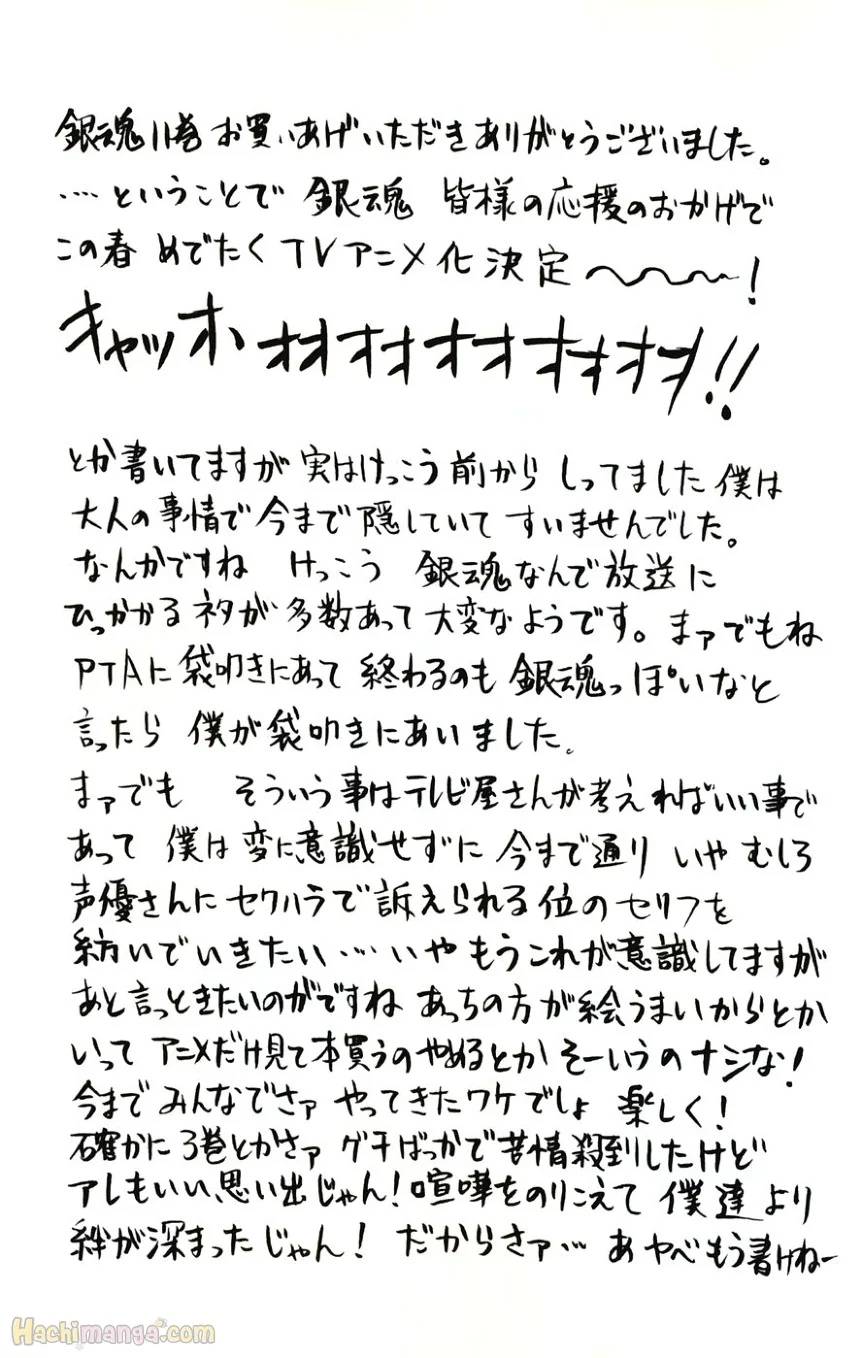 銀魂11巻 お買いあげいただきありがとうございました。
…ということで 銀魂 皆様の応援のおかげで
この春 めでたくTVアニメ化決定〜〜〜!
キャッホォオオオオオオオオオヲ!!
とか書いてますが 実はけっこう前から しってました僕は
大人の事情で今まで隠していて すいませんでした。
なんかですね けっこう 銀魂なんで放送に
ひっかかるネタが多数あって大変なようです。まァでもね
PTAに袋叩きにあって終わるのも銀魂っぽいなと
言ったら 僕が袋叩きにあいました。
まァでも そういう事はテレビ屋さんが考えればいい事で
あって 僕は変に意識せずに今まで通り いや むしろ
声優さんにセクハラで訴えられる位のセリフを
紡いでいきたい…いや もうこれが意識してますが
あと言っときたいのがですね あっちの方が絵うまいからとか
いって アニメだけ見て本買うのやめるとか そーいうのナシな!
今まで みんなでさァ やってきたワケでしょ 楽しく!
確かに3巻とかさァ ゲチばっかで苦情殺到したけど
アレもいい思い出じゃん!喧嘩をのりこえて 僕達 より
絆が深まったじゃん! だからさァ… あ やべもう書けねー
Hachimanga.com